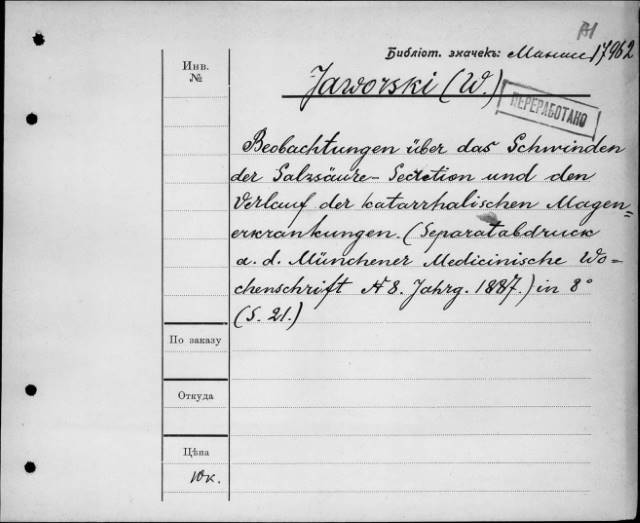 Библіот. значекъ: 17962
Инв.
№
Jaworski (W.)
ПЕРЕРАБОТАНО
Beobachtungen über das Schwinden
der Salzsäure-Secretion und den
Verlauf der katarrhalischen Magen=
erkrankungen. (Separatabdruck
a. d. Münchener Medicinische Wo-
chenschrift № 8. Jahrg. 1887.) in 8°
(S. 21.)
По заказу
Откуда
Цѣна
10к.